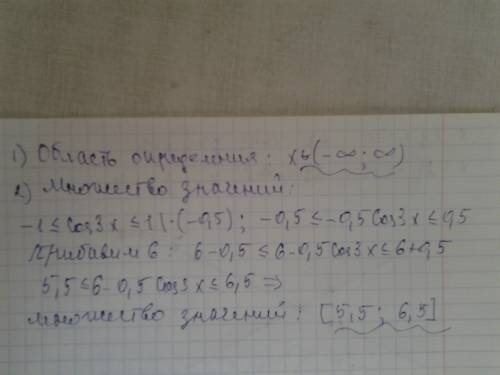 1) Область определения: x∈(-∞; ∞)
2) Множество значений:
-1≤cos3x≤1|·(-0,5); -0,5≤-0,5cos3x≤0,5
Прибавим 6: 6-0,5≤6-0,5cos3x≤6+0,5
5,5≤6-0,5cos3x≤6,5⇒
множество значений: [5,5; 6,5]